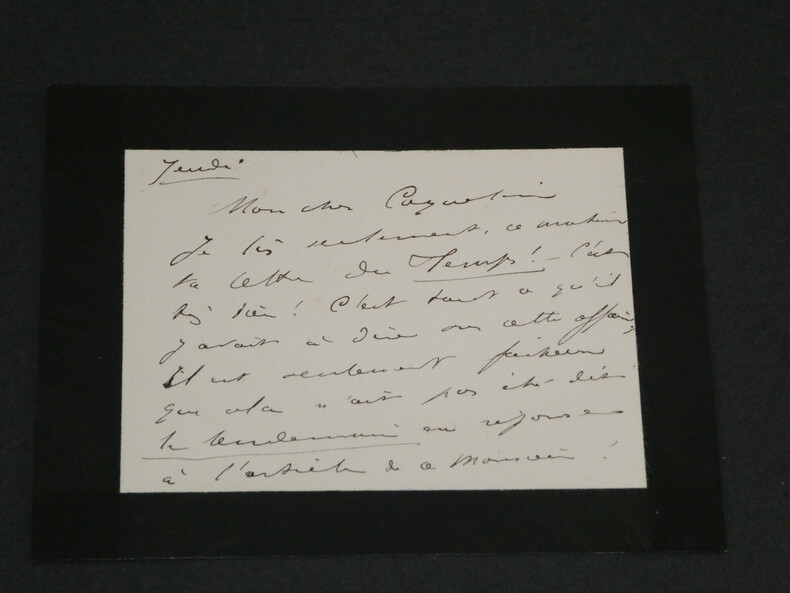 Jeudi
Mon cher Coquelin
Je lis seulement, ce matin
ta lettre du Temps! - C'est
très bien! C'est tout ce qu'il
y avait à dire sur cette affaire,
Il est seulement fâcheux
que cela n'ait pas été dit
le lendemain en réponse
à l'article de ce Monsieur!